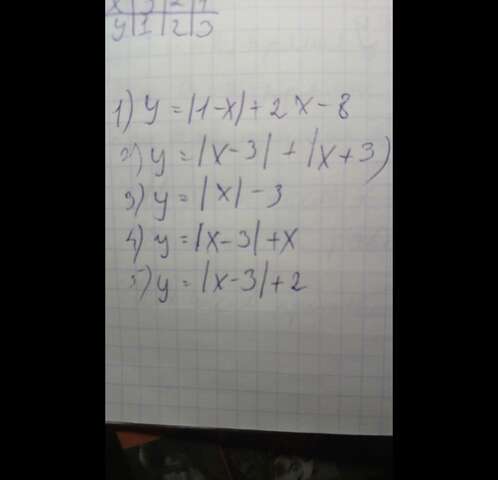 y | 1 | 2 | 3
1) y = |1-x| + 2x - 8
2) y = |x-3| + |x+3)
3) y = |x| - 3
4) y = |x-3| + x
5) y = |x-3| + 2